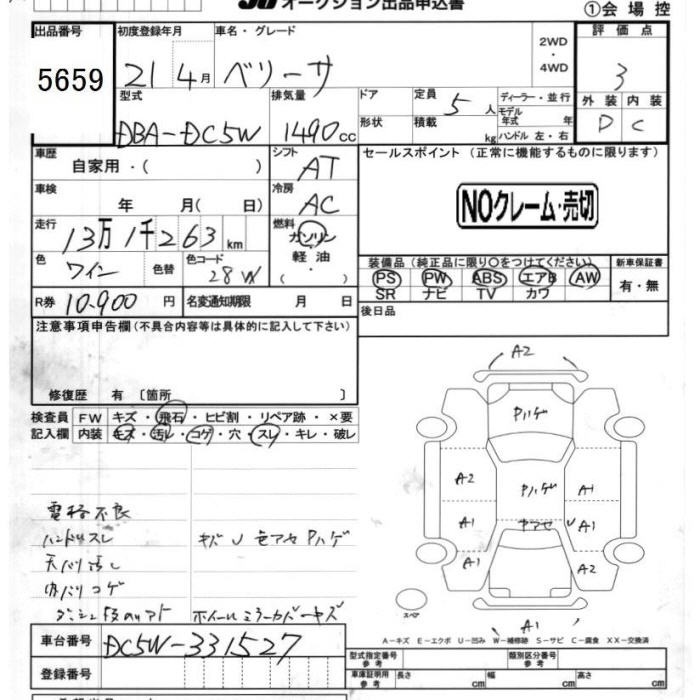 オークション出品申込書
①会場控
出品番号
5659
初度登録年月
21 4月
車名・グレード
ベリーサ
2WD
・
4WD
評価点
3
外装 内装
D C
型式
DBA-DC5W
排気量
1490cc
ドア
形状
定員 5人
積載 kg
ディーラー・並行
モデル年式 年
ハンドル 左・右
車歴
自家用・( )
シフト
AT
セールスポイント (正常に機能するものに限ります)
車検
年 月( 日)
冷房
AC
NOクレーム・売切
走行
13万1千263km
燃料
ガソリン
軽油
( ・ )
色
ワイン
色替
色コード
28W
装備品 (純正品に限り○をつけてください)
PS PW ABS エアB AW
SR ナビ TV カワ
新車保証書
有・無
R券 10,900円
名変通知期限 月 日
後日品
注意事項申告欄(不具合内容等は具体的に記入して下さい)
修復歴 有 〔箇所 〕
検査員 FW キズ・飛石・ヒビ割・リペア跡・×要
記入欄 内装 キズ・汚レ・コゲ・穴・スレ・キレ・破レ
A2
Pハゲ
A2
Pハゲ
A1
A1
ヤアセ
U
A1
A1
A2
スペア
A1
電格不良
ハンドルスレ
キズ U 色アセ Pハゲ
天バリ汚し
内バリコゲ
ホイールミラーカバーキズ
A-キズ E-エクボ U-凹み W-補修跡 S-サビ C-腐食 XX-交換済
車台番号
DC5W-331527
登録番号
型式指定番号
参考
類別区分番号
参考
車庫証明用
参考
長さ cm
幅 cm
高さ cm